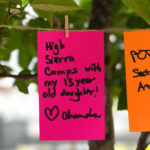 High
Sierra
Camps with
my 13 year
old daughter!
♡ Chandra